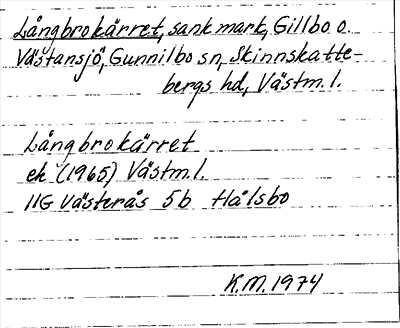 Långbrokärret, sank mark, Gillbo o.
Västansjö, Gunnilbo sn, Skinnskatte-
bergs hd, Västm.l.
Långbrokärret
ek (1965) Västm.l.
11G Västerås 5b Hålsbo
K.M. 1974